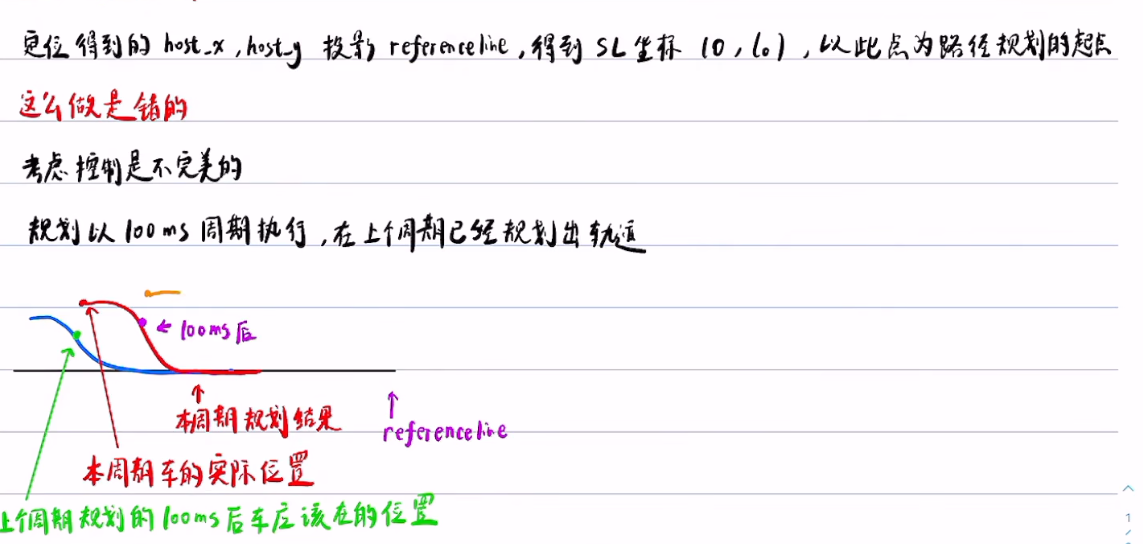 定位得到的 host_x,host_y 投影 referenceline,得到 SL 坐标 (0, l₀),以此点为路径规划的起点
这么做是错的
考虑控制是不完美的
规划以 100ms 周期执行,在上个周期已经规划出轨迹
← 100ms 后
本周期规划结果
referenceline
本周期车的实际位置
上个周期规划的 100ms 后车应该在的位置